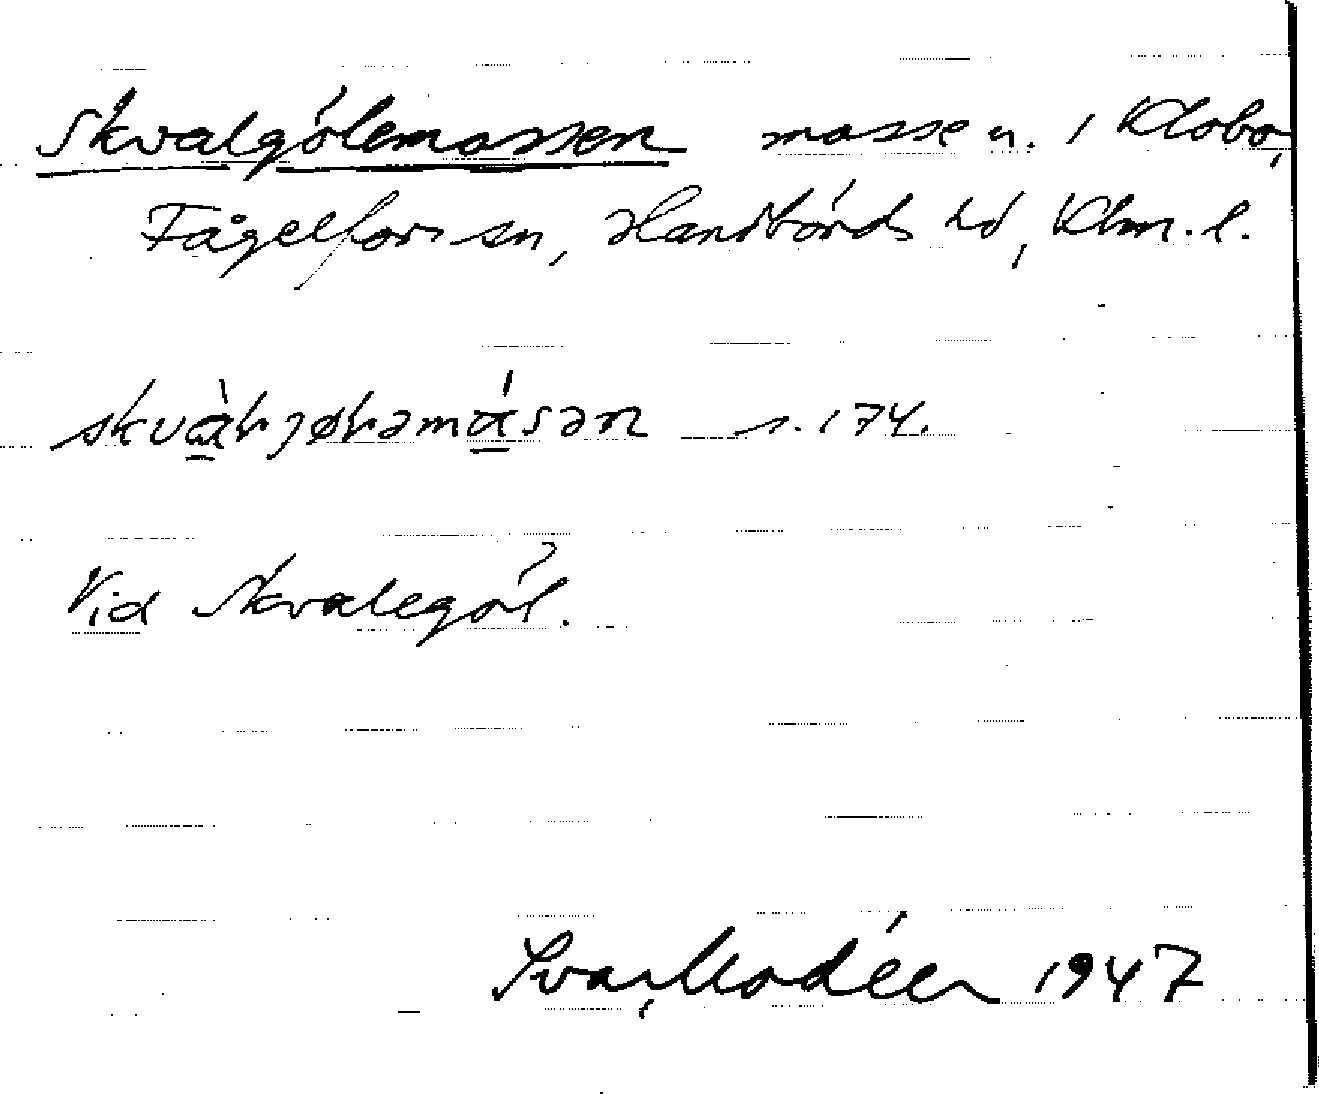 Skvalgölemossen mosse n. i Klobo,
Fågelfors sn, Handbörds hd, Klm. l.
skvàlɩjøləmásən s. 174.
Vid Skvalegöl.
Ivar Modéer 1947